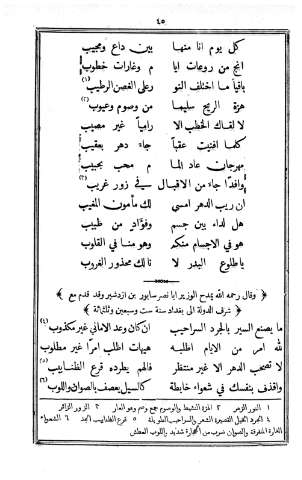 ٤٥
كل يوم انا منها بين داع ومجيب
انج من روعات ايا م وغارات خطوب
باقيا ما اختلف النو رعلى الغصن الرطيب (١)
هزة الريح سليما من وصوم وعيوب (٢)
لا لقاك الخطب الا راميا غير مصيب
كلما افنيت عقبا جاء دهر بعقيب
مهرجان عاد الما م محب بحبيب
وافدا جاء من الاقبال في زور غريب (٣)
ان ريب الدهر امسى لك مأمون المغيب
هل لداء بين جسم وفؤاد من طبيب
هو في الاجسام منكم وهو منا في القلوب
يا طلوع البدر لا نالك محذور الغروب
﴿ وقال رحمه الله يمدح الوزير ابا نصر سابور بن ازدشير وقد قدم مع ﴾
﴿ شرف الدولة الى بغداد سنة ست وسبعين وثلثمائة ﴾
ما يصنع السير بالجرد السراحيب ان كان وعد الاماني غير مكذوب (٤)
لله امر من الايام اطلبه هيهات اطلب امرا غير مطلوب
لا تصحب الدهر الا غير منتظر فالهم يطرده قرع الظنابيب (٥)
واقذف بنفسك في شعواء خابطة كالسيل يعصف بالصوان واللوب (٦)
١ النور الزهر ٢ الهزة النشيط والوصوم جمع وصم وهو العار ٣ الزور الزائر
٤ الجرد الخيل القصيرة الشعر والسراحيب الطويلة ٥ قرع الظنابيب الجد ٦ الشعواء
الغارة المتفرقة والصوان ضرب من الحجارة شديد واللوب العطش